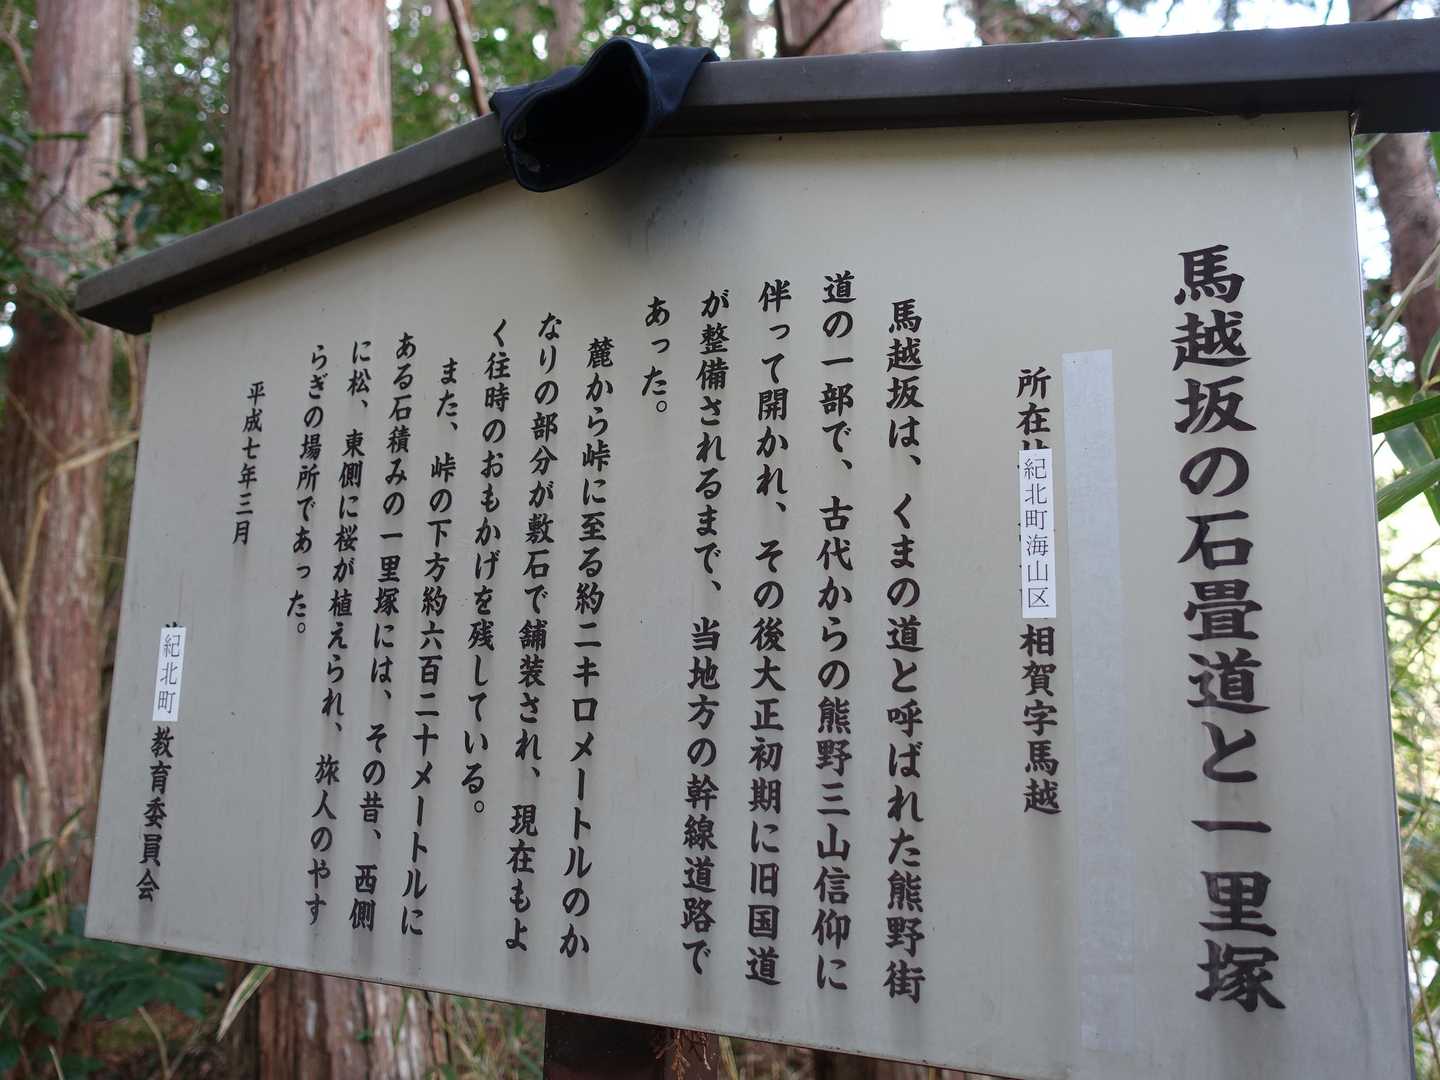 馬越坂の石畳道と一里塚
所在地 紀北町海山区相賀字馬越
馬越坂は、くまの道と呼ばれた熊野街
道の一部で、古代からの熊野三山信仰に
伴って開かれ、その後大正初期に旧国道
が整備されるまで、当地方の幹線道路で
あった。
麓から峠に至る約二キロメートルのか
なりの部分が敷石で舗装され、現在もよ
く往時のおもかげを残している。
また、峠の下方約六百二十メートルに
ある石積みの一里塚には、その昔、西側
に松、東側に桜が植えられ、旅人のやす
らぎの場所であった。
平成七年三月
紀北町教育委員会